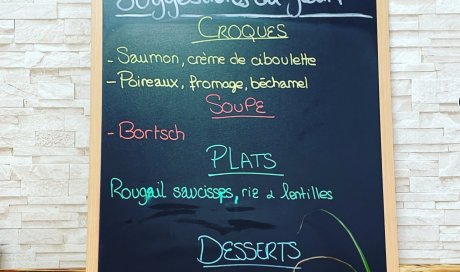 Suggestions du jour
CROQUES
- Saumon, crème de ciboulette
- Poireaux, fromage, béchamel
SOUPE
- Bortsch
PLATS
Rougail saucisses, riz & lentilles
DESSERTS